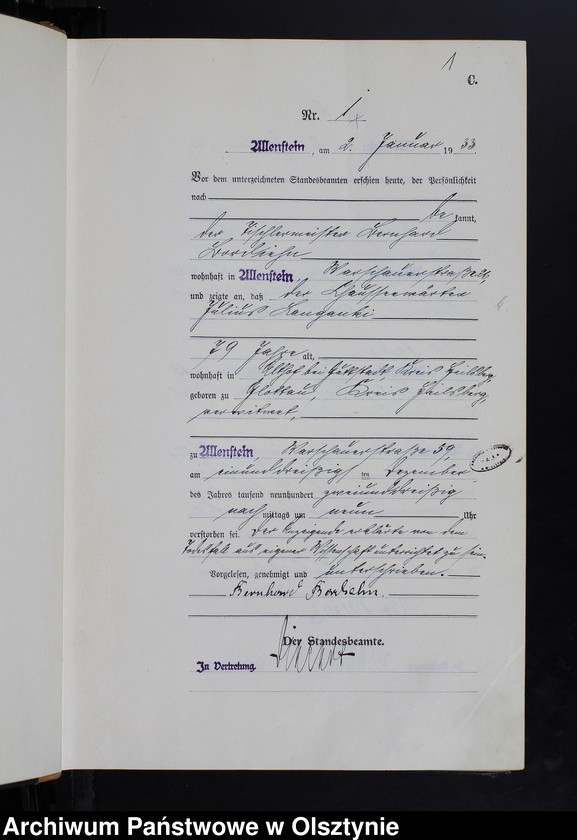 1
C.
Nr. 1
Allenstein, am 2. Januar 1933
Vor dem unterzeichneten Standesbeamten erschien heute, der Persönlichkeit
nach
bekannt,
der Tischlermeister Bernhard
wohnhaft in Allenstein, Warschauerstraße
und zeigte an, daß der Chausseewärter
Julius Langanki
79 Jahre alt,
wohnhaft in bei Guttstadt, Kreis Heilsberg,
geboren zu Glottau, Kreis Heilsberg,
verwitwet,
zu Allenstein, Warschauerstraße 59,
am einunddreißigsten Dezember
des Jahres tausend neunhundert zweiunddreißig
nachmittags um neun Uhr
verstorben sei. Der Anzeigende erklärte von dem
Todesfall aus eigener Wissenschaft unterrichtet zu sein.
Vorgelesen, genehmigt und unterschrieben.
Bernhard
Der Standesbeamte.
In Vertretung.
Archiwum Państwowe w Olsztynie